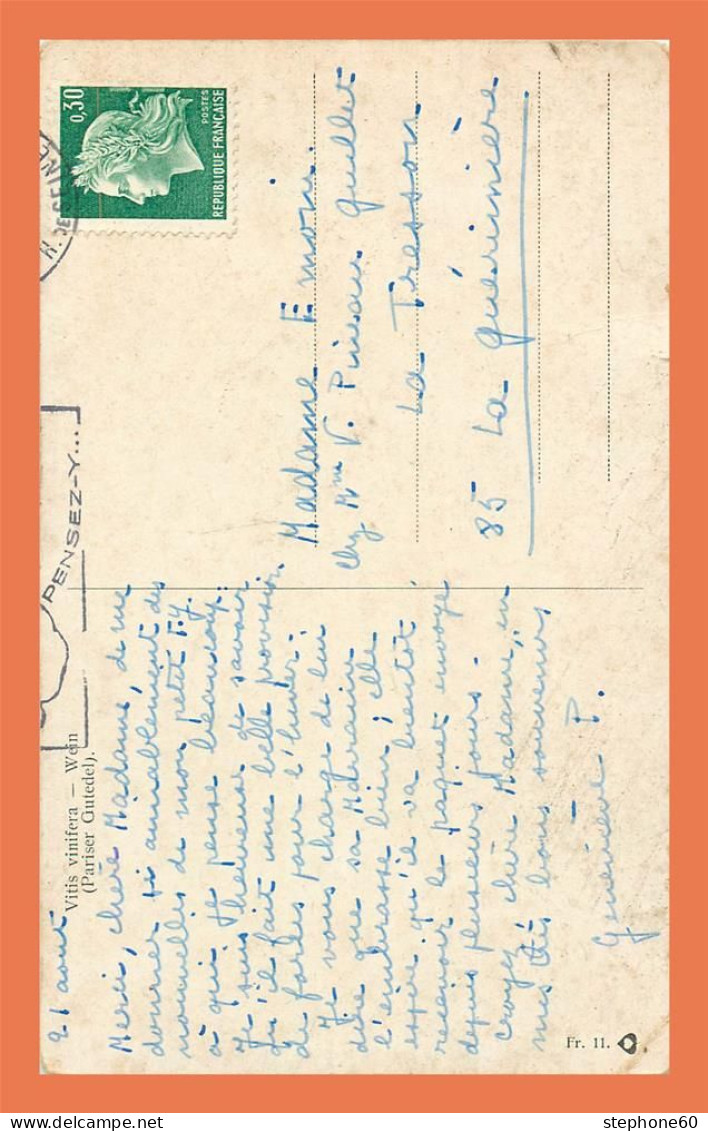 0,30
POSTES
REPUBLIQUE FRANÇAISE
PENSEZ-Y...
Vitis vinifera — Wein
(Pariser Gutedel).
21 août
Merci, chère Madame, de me
donner si aimablement des
nouvelles de mon petit F.Y.
à qui je pense beaucoup.
Je suis heureuse de savoir
qu'il fait une belle provision
de forces pour l'hiver.
Je vous charge de lui
dire que sa Marraine
l'embrasse bien ; elle
espère qu'il va bientôt
recevoir le paquet envoyé
depuis plusieurs jours -
Croyez, chère Madame, en
mes très bons souvenirs
Geneviève P.
Madame E Morin
chez Mme V. Pineau Quillet
La Tresson
85 La Guérinière
Fr. 11.
stephone60